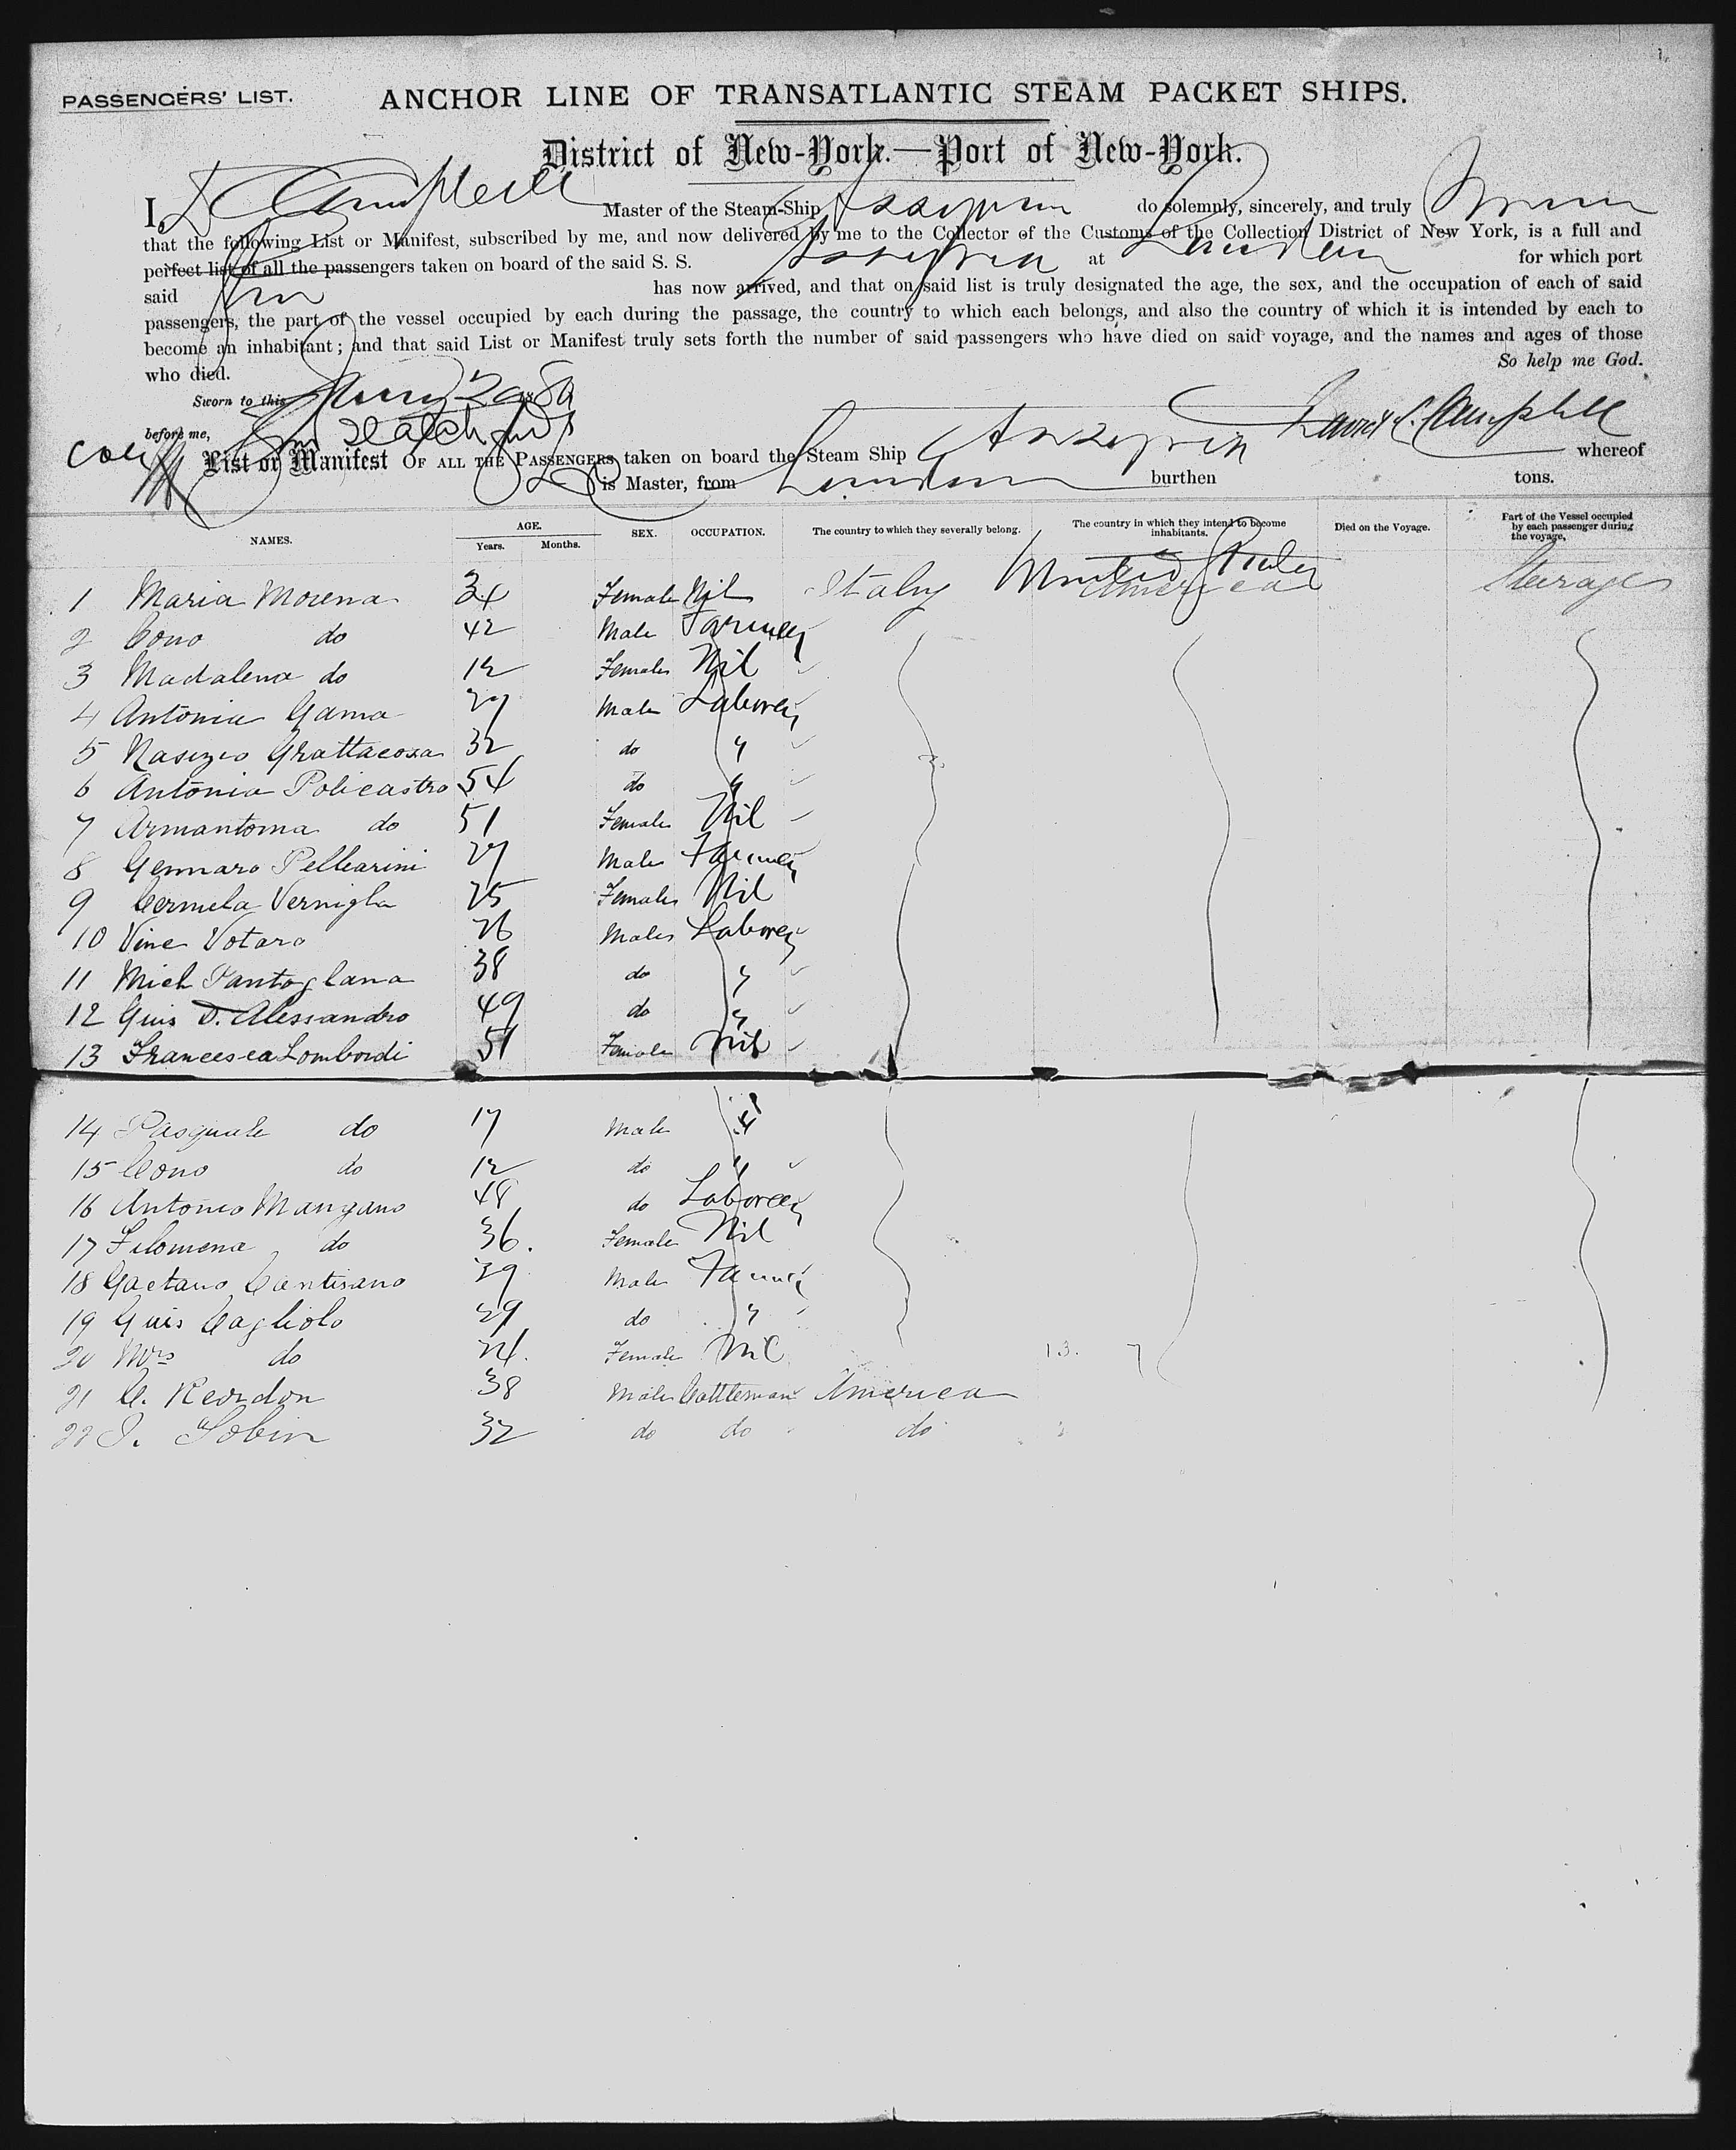 PASSENGERS' LIST.
ANCHOR LINE OF TRANSATLANTIC STEAM PACKET SHIPS.
District of New-York.—Port of New-York.
I, D C Campbell Master of the Steam-Ship Assyria do solemnly, sincerely, and truly Swear
that the following List or Manifest, subscribed by me, and now delivered by me to the Collector of the Customs of the Collection District of New York, is a full and
perfect list of all the passengers taken on board of the said S. S. Assyria at London for which port
said has now arrived, and that on said list is truly designated the age, the sex, and the occupation of each of said
passengers, the part of the vessel occupied by each during the passage, the country to which each belongs, and also the country of which it is intended by each to
become an inhabitant; and that said List or Manifest truly sets forth the number of said passengers who have died on said voyage, and the names and ages of those
who died. So help me God.
Sworn to this 29 1889
before me, David C. Campbell
List or Manifest OF ALL THE PASSENGERS taken on board the Steam Ship Assyria whereof
is Master, from London burthen tons.
NAMES. AGE. Years. Months. SEX. OCCUPATION. The country to which they severally belong. The country in which they intend to become inhabitants. Died on the Voyage. Part of the Vessel occupied by each passenger during the voyage,
1 Maria Morena 34 Female Nil Italy United States America Steerage
2 Cono do 42 Male Farmer
3 Madalena do 12 Female Nil
4 Antonia Gama 27 Male Laborer
5 Grattacosa 32 do "
6 Antonia Policastro 54 do "
7 Armantoma do 51 Female Nil
8 Gennaro Pellearini 27 Male Farmer
9 Cermela Vernigla 25 Female Nil
10 Vine Votaro 26 Male Laborer
11 Mich Santoglana 38 do "
12 Guis D. Alessandro 49 do "
13 Francesca Lombordi 51 Female Nil
14 Pasquale do 17 Male "
15 Cono do 12 do "
16 Antonio Mangano 48 do Laborer
17 Filomena do 36. Female Nil
18 Gaetano Cantisano 39 Male Farmer
19 Guis Cagliolo 29 do "
20 Mrs do 24. Female Nil 13. 7
21 C. Reordon 38 Male Cattleman America
22 J. Tobin 32 do do do